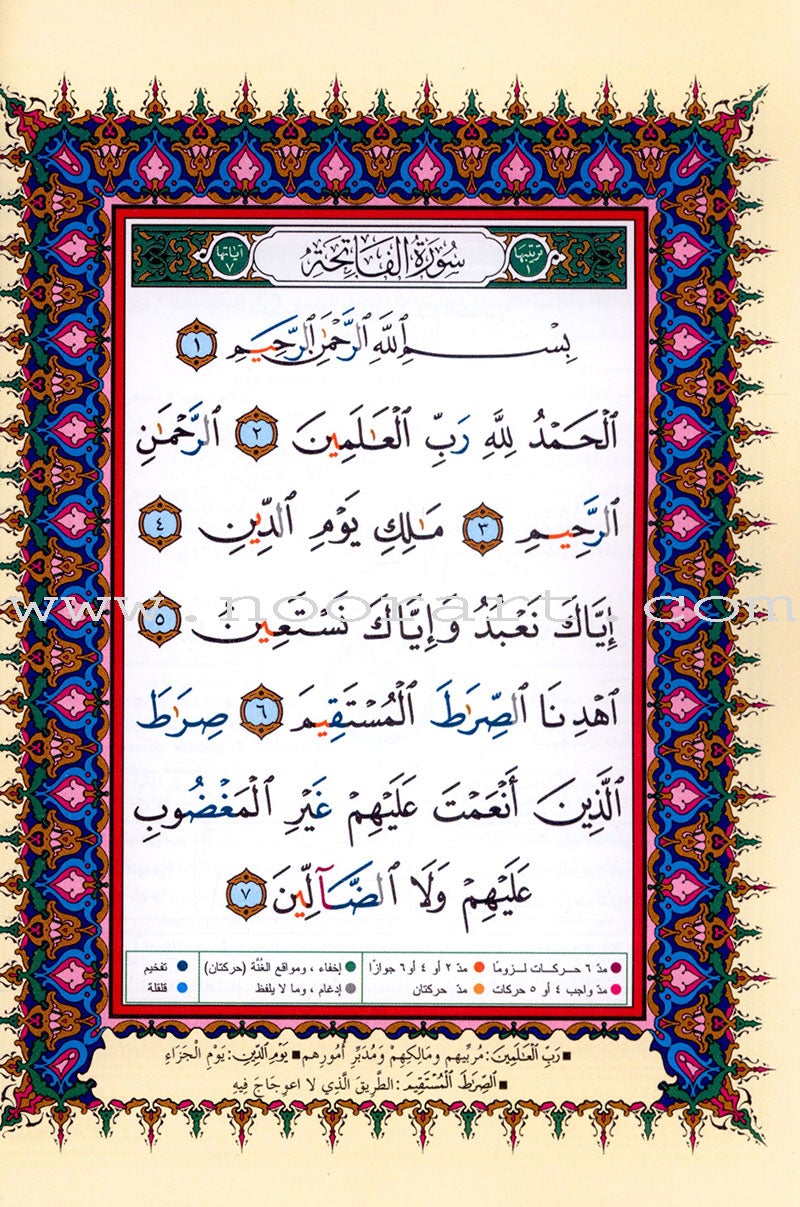 ترتيبها ١ سُورَةُ الفَاتِحَة آياتها ٧
بِسْمِ ٱللَّهِ ٱلرَّحْمَٰنِ ٱلرَّحِيمِ ١
ٱلْحَمْدُ لِلَّهِ رَبِّ ٱلْعَٰلَمِينَ ٢ ٱلرَّحْمَٰنِ
ٱلرَّحِيمِ ٣ مَٰلِكِ يَوْمِ ٱلدِّينِ ٤
إِيَّاكَ نَعْبُدُ وَإِيَّاكَ نَسْتَعِينُ ٥
www.noorart.com
ٱهْدِنَا ٱلصِّرَٰطَ ٱلْمُسْتَقِيمَ ٦ صِرَٰطَ
ٱلَّذِينَ أَنْعَمْتَ عَلَيْهِمْ غَيْرِ ٱلْمَغْضُوبِ
عَلَيْهِمْ وَلَا ٱلضَّآلِّينَ ٧
مدّ ٦ حـركـات لـزومـًا مدّ ٢ أو ٤ أو ٦ جوازًا إخفاء ، ومواقع الغُنَّة (حركتان) تفخيم
مدّ واجب ٤ أو ٥ حركات مدّ حركتان إدغام ، وما لا يلفظ قلقلة
رَبِّ ٱلْعَٰلَمِينَ : مُرَبِّيهِم وَمَالِكِهِمْ وَمُدَبِّرِ أُمُورِهِم يَوْمِ ٱلدِّينِ : يَوْمِ الْجَزَاءِ
ٱلصِّرَٰطَ ٱلْمُسْتَقِيمَ : الطَّرِيقَ الَّذِي لا اعوِجَاجَ فِيهِ